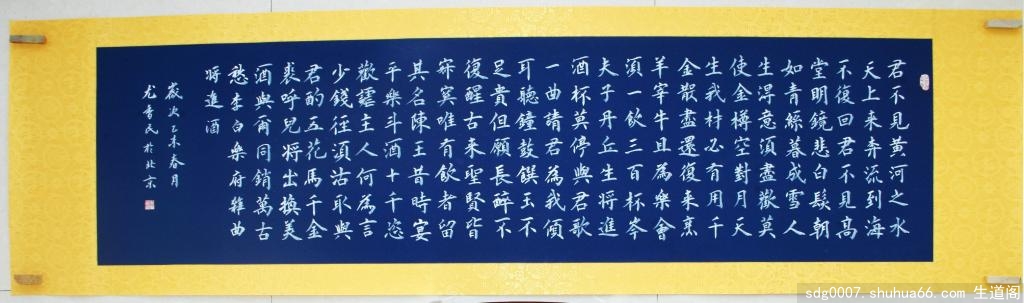 君不見黃河之水
天上来奔流到海
不復回君不見高
堂明鏡悲白髮朝
如青絲暮成雪人
生得意須盡歡莫
使金樽空對月天
生我材必有用千
金散盡還復来烹
羊宰牛且為樂會
須一飲三百杯岑
夫子丹丘生將進
酒杯莫停與君歌
一曲請君為我傾
耳聽鐘鼓饌玉不
足貴但願長醉不
復醒古来聖賢皆
寂寞唯有飲者留
其名陳王昔時宴
平樂斗酒十千恣
歡謔主人何為言
少錢徑須沽取與
君酌五花馬千金
裘呼兒將出換美
酒與爾同銷萬古
愁李白樂府雜曲
將進酒
歲次乙未春月
尤香民於北京
sdg0007.shuhua66.com 生道阁